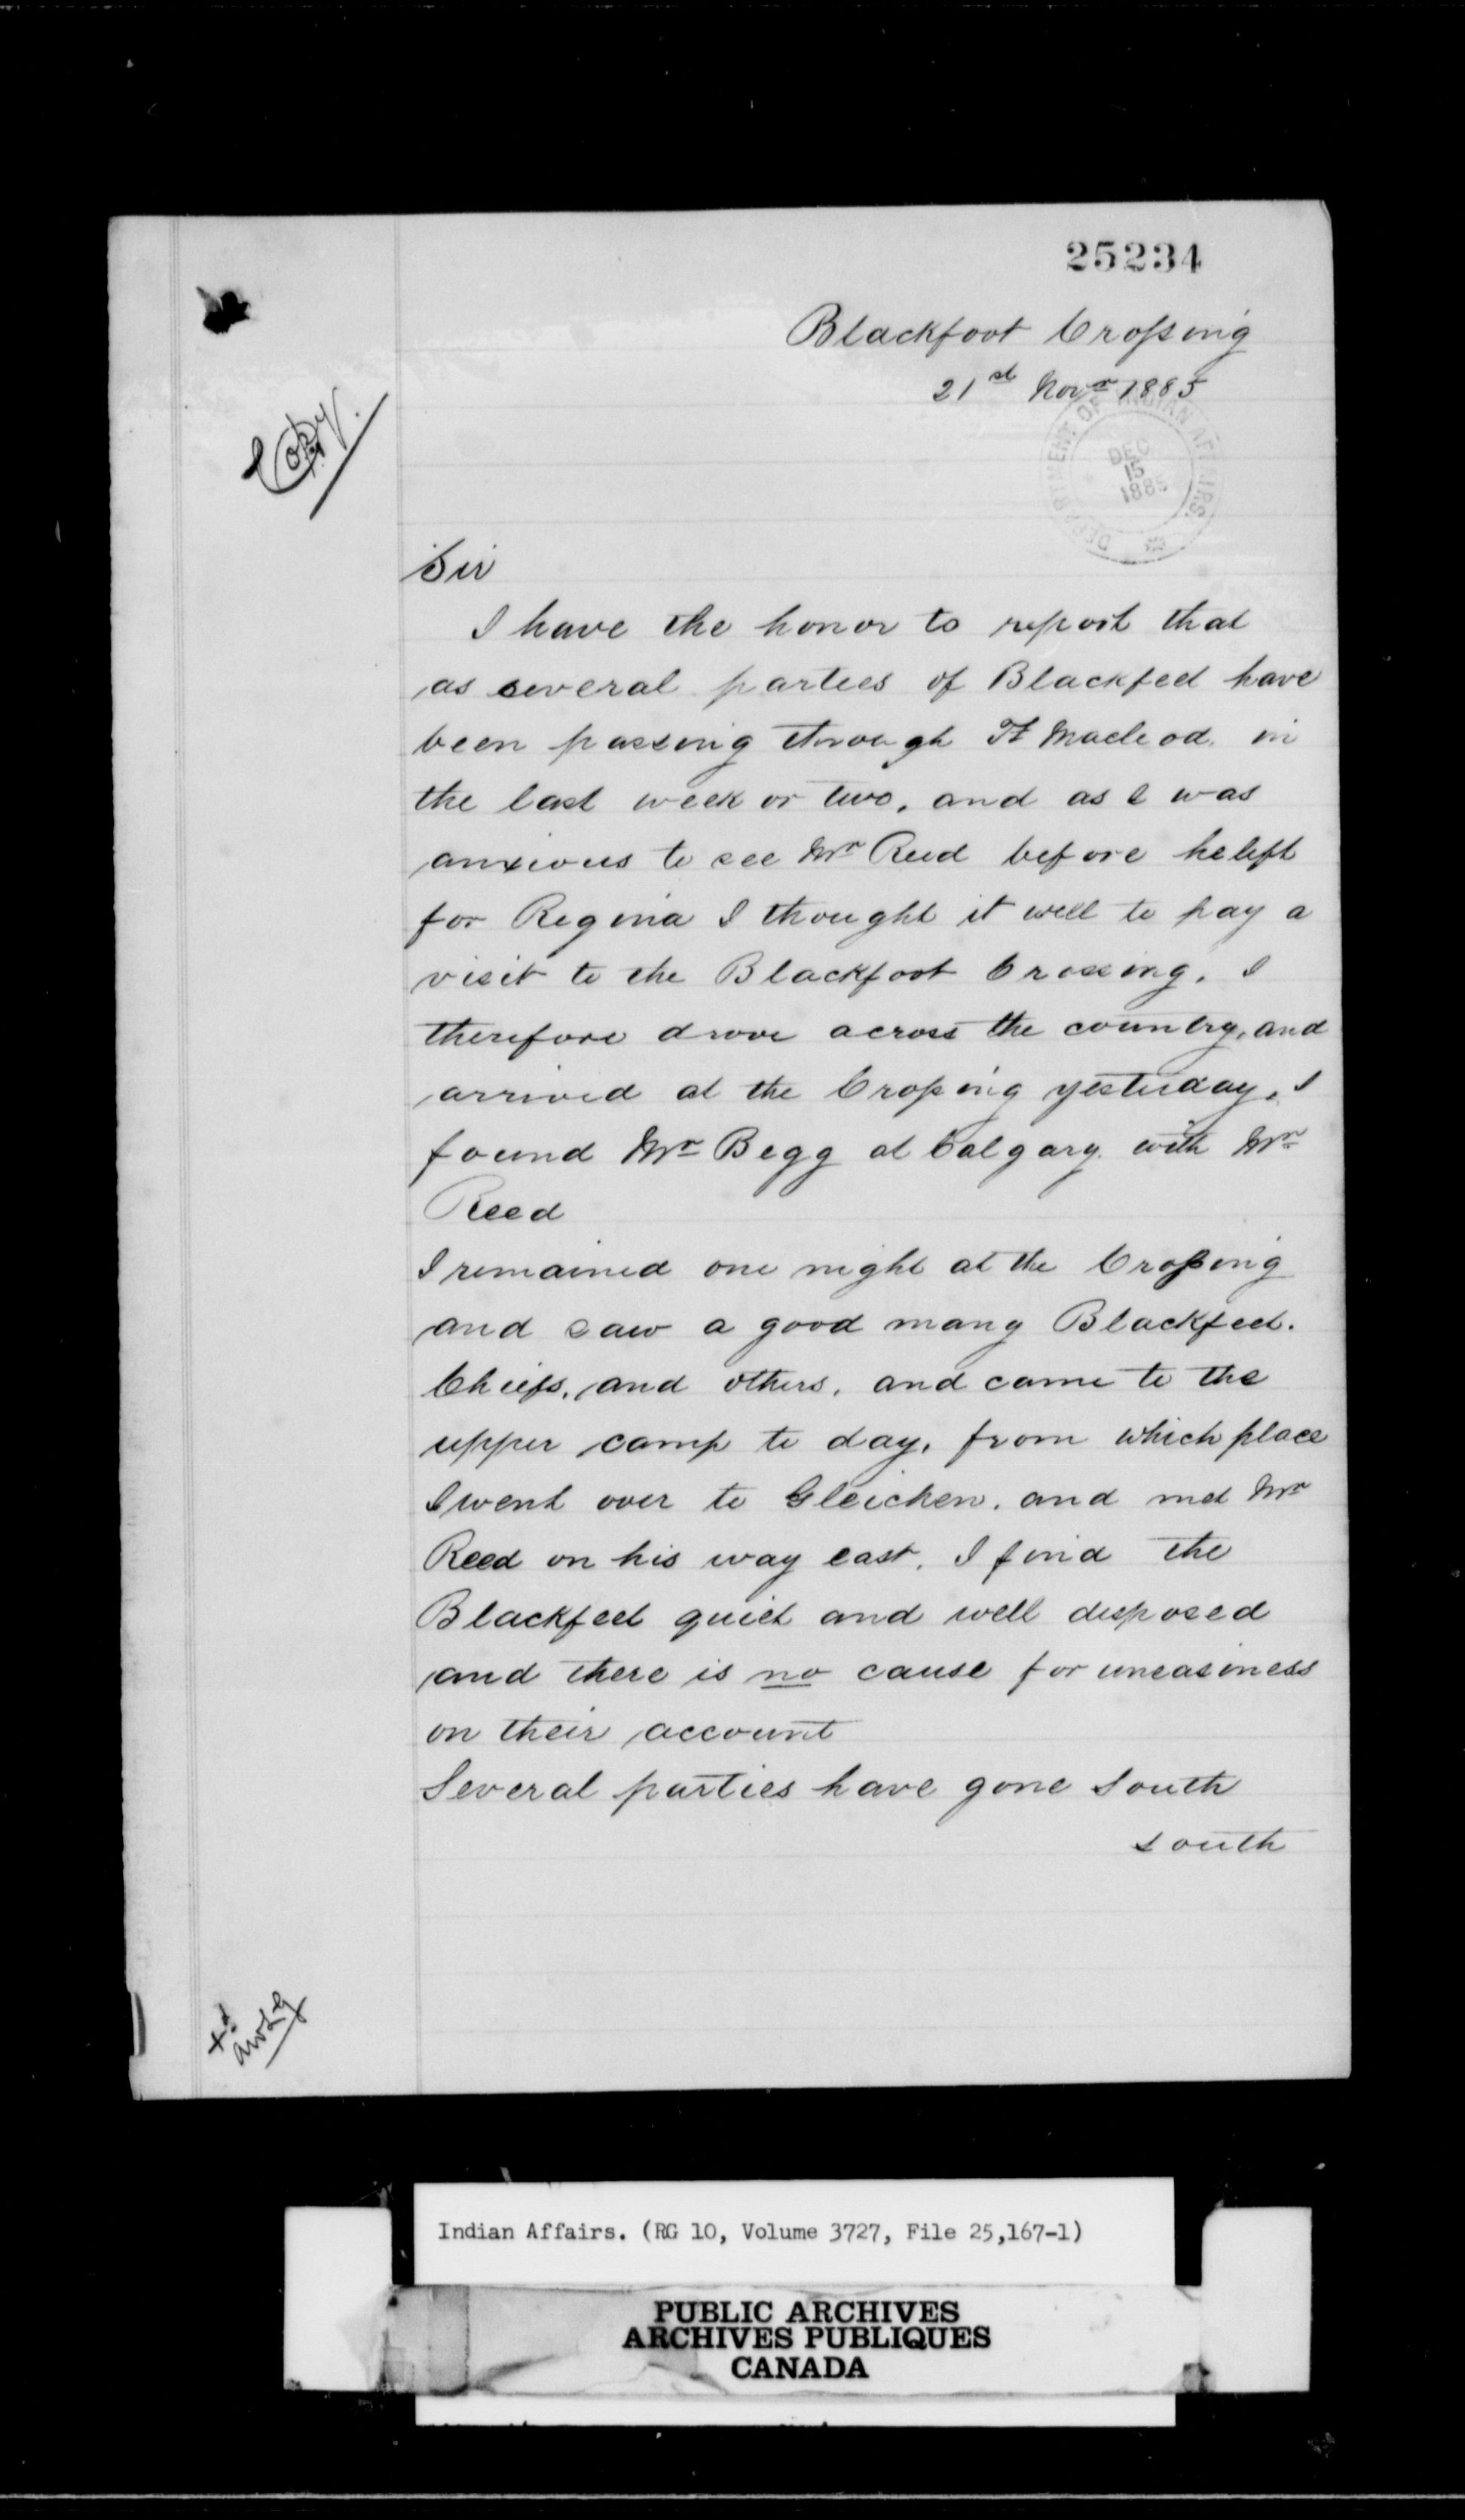 25234
Blackfoot Crossing
21st Novr 1885
DEPARTMENT OF INDIAN AFFAIRS.
DEC
15
1885
Copy.
Sir
I have the honor to report that
as several parties of Blackfeet have
been passing through Ft Macleod. in
the last week or two, and as I was
anxious to see Mr Reed before he left
for Regina I thought it well to pay a
visit to the Blackfoot Crossing. I
therefore drove across the country, and
arrived at the Crossing yesterday, I
found Mr Begg at Calgary with Mr
Reed
I remained one night at the Crossing
and saw a good many Blackfeet.
Chiefs, and others, and came to the
upper camp to day, from which place
I went over to Gleichen, and met Mr
Reed on his way east. I find the
Blackfeet quiet and well disposed
and there is no cause for uneasiness
on their account
Several parties have gone South
south
Indian Affairs. (RG 10, Volume 3727, File 25,167-1)
PUBLIC ARCHIVES
ARCHIVES PUBLIQUES
CANADA